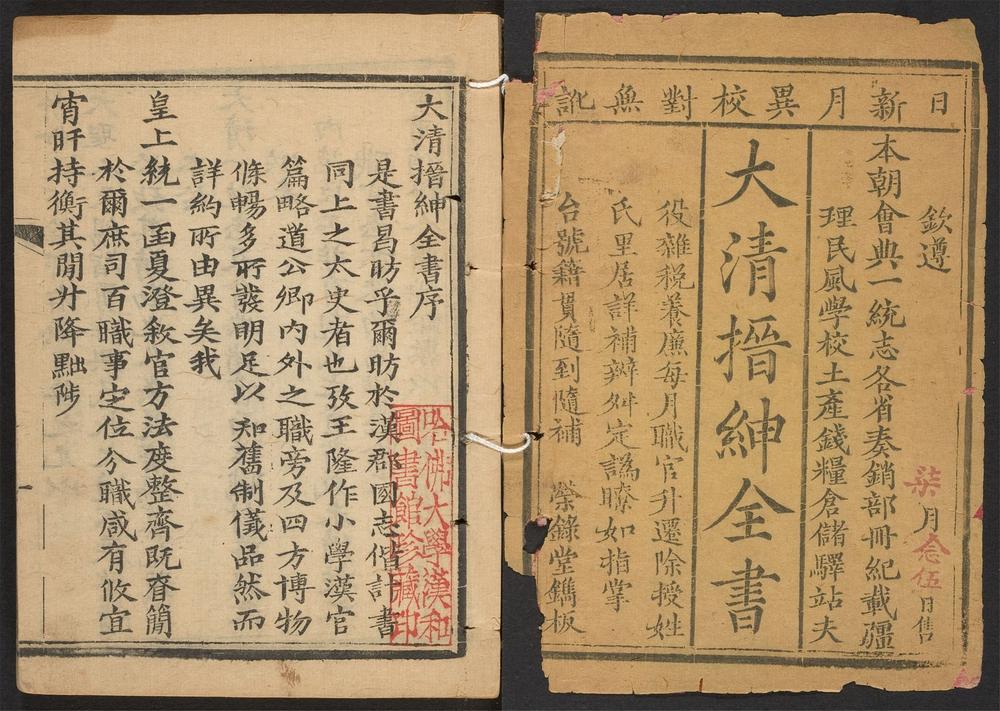 日新月異校對無訛
欽遵 柒月念伍日售
本朝會典一統志各省奏銷部冊紀載疆
理民風學校土產錢糧倉儲驛站夫
大清搢紳全書
役雜稅養廉每月職官升遷除授姓
氏里居詳補辨舛定譌瞭如指掌
台號籍貫隨到隨補 榮錄堂鐫板
大清搢紳全書序
是書昌昉乎爾昉於漢郡國志偕計書
同上之太史者也攷王隆作小學漢官
篇略道公卿內外之職旁及四方博物
條暢多所發明足以知舊制儀品然而
詳約所由異矣我
皇上統一函夏澄敘官方法度整齊既脊簡
於爾庶司百職事定位分職咸有攸宜
宵旰持衡其閒升降黜陟
哈佛大學漢和
圖書館珍藏印